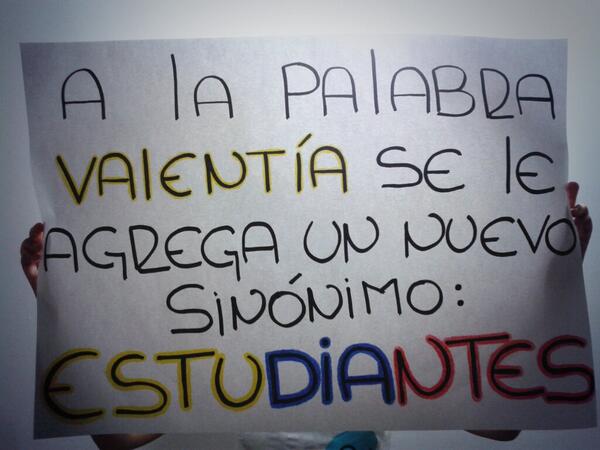 A la PALABRA
VALENTÍA SE lE
AGREGA UN NUEVO
SiNÓNiMO:
ESTUDiANTES